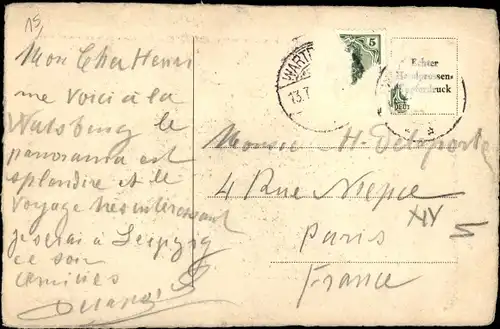 15
Mon Cher Henri
me voici à la
Watsburg le
panorama est
splendire et le
voyage très intéressant
je serai à Leipzig
ce soir
amitiés
WART
13.7
5
Echter
Handpressen-
Kupferdruck
Monsieur H. Delaporte
4 Rue Niepce
XIV
Paris
France